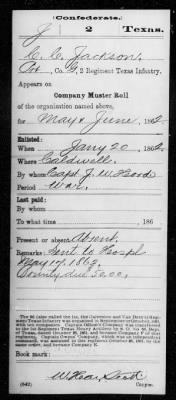 (Confederate.)
J 2 Texas.
C. C. Jackson.
Pvt, Co. G, 2 Regiment Texas Infantry.
Appears on
Company Muster Roll
of the organization named above,
for May & June, 1862.
Enlisted:
When Jany 20, 1862.
Where Caldwell.
By whom Capt J. W. Hood
Period War.
Last paid:
By whom
To what time 186
Present or absent Absent.
Remarks: Sent to Hospl
May 17, 1862.
Bounty due 50.00.
Book mark:
(642) Copyist.